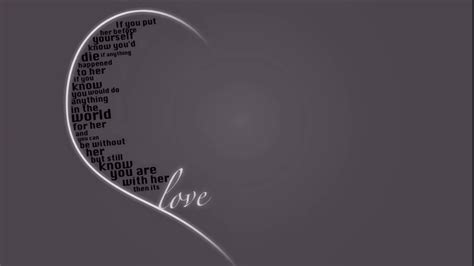 If you put
her before
yourself
know you'd
die if anything
happened
to her
if you
know
you would do
anything
in the
world
for her
and
you can
be without
her
but still
know
you are
with her
then its
love